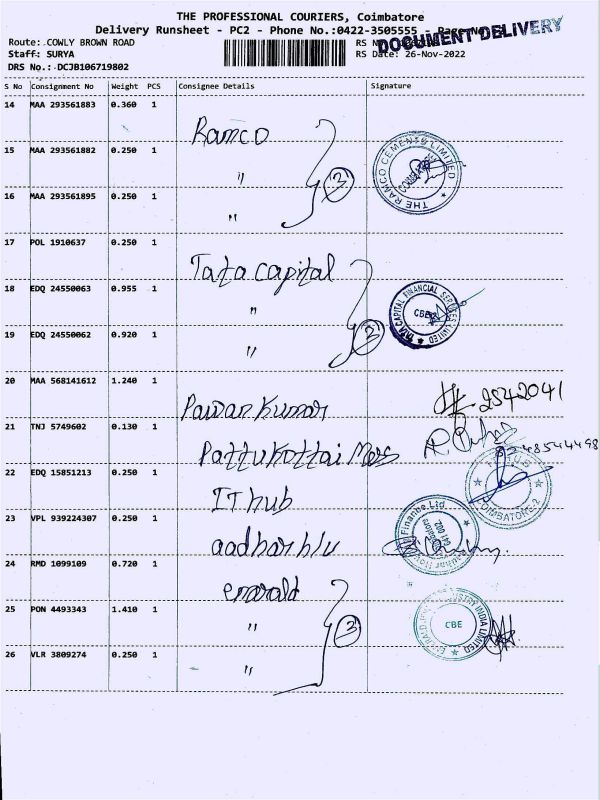 THE PROFESSIONAL COURIERS, Coimbatore
Delivery Runsheet - PC2 - Phone No.:0422-3505555
DOCUMENT DELIVERY
Route: COWLY BROWN ROAD
Staff: SURYA
RS Date: 26-Nov-2022
DRS No.: DCJB106719802
S No Consignment No Weight PCS Consignee Details Signature
14 MAA 293561883 0.360 1
Ramco
15 MAA 293561882 0.250 1
" 3
THE RAMCO CEMENTS LIMITED
COIMBATORE
16 MAA 293561895 0.250 1
"
17 POL 1910637 0.250 1
Tata capital
18 EDQ 24550063 0.955 1
"
TATA CAPITAL FINANCIAL SERVICES LIMITED
CBE
19 EDQ 24550062 0.920 1
" 3
20 MAA 568141612 1.240 1
Pawan Kumar 2542041
21 TNJ 5749602 0.130 1
Pattukottai Mess
22 EDQ 15851213 0.250 1
IT hub
COIMBATORE-2
23 VPL 939224307 0.250 1
aadhar hlu
Finance Ltd.
24 RMD 1099109 0.720 1
emerald
25 PON 4493343 1.410 1
" 3
INDIA LIMITED
CBE
26 VLR 3809274 0.250 1
"